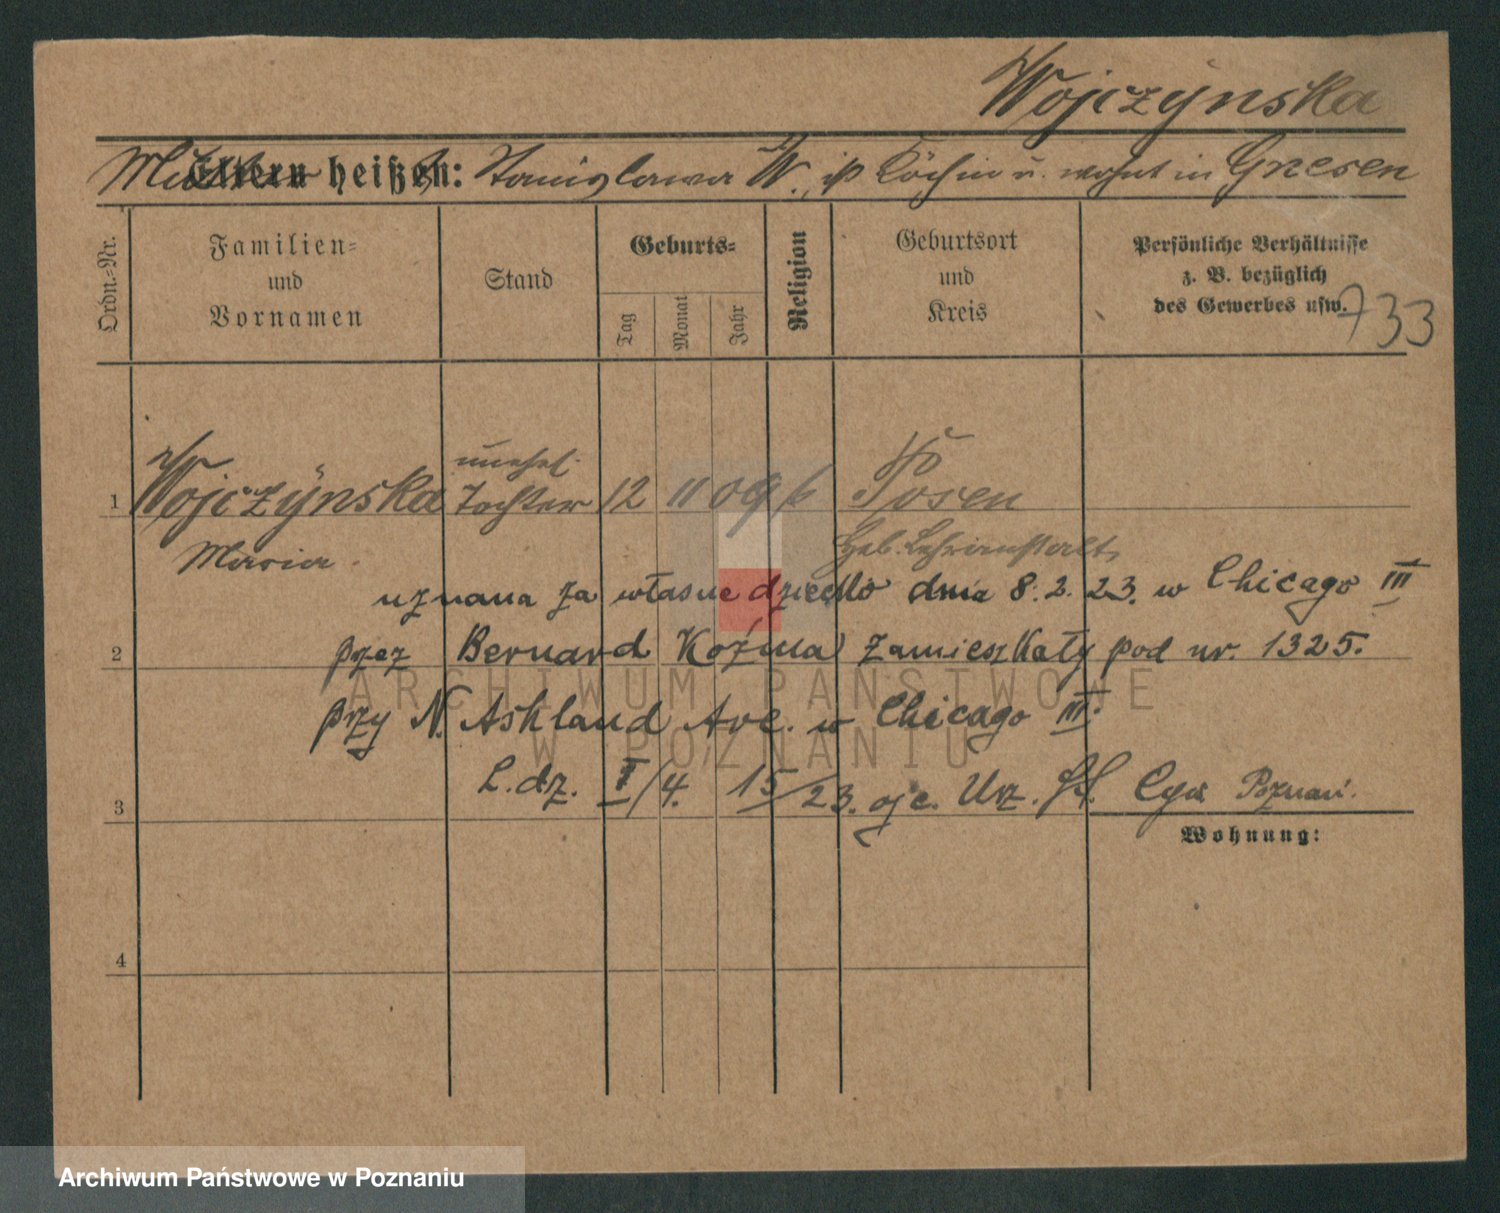 Wojczynska
Mutter heißt: Stanislawa W., ist Köchin u. wohnt in Gnesen
Eltern heißen:
Ordn.-Nr.
Familien-
und
Vornamen
Stand
Geburts-
Tag
Monat
Jahr
Religion
Geburtsort
und
Kreis
Persönliche Verhältnisse
z. B. bezüglich
des Gewerbes usw.
733
unehel.
1 Wojczynska Tochter 12 11 09 k Posen
Maria Heb. Lehranstalt
uznana za własne dziecko dnia 8. 2. 23. w Chicago III
2 przez Bernard Koźma zamieszkały pod nr. 1325.
przy N. Ashland Ave. w Chicago III.
3 L. dz. I/4. 15/23. Urz. St. Poznań.
Wohnung:
4
ARCHIWUM PAŃSTWOWE
W POZNANIU
Archiwum Państwowe w Poznaniu